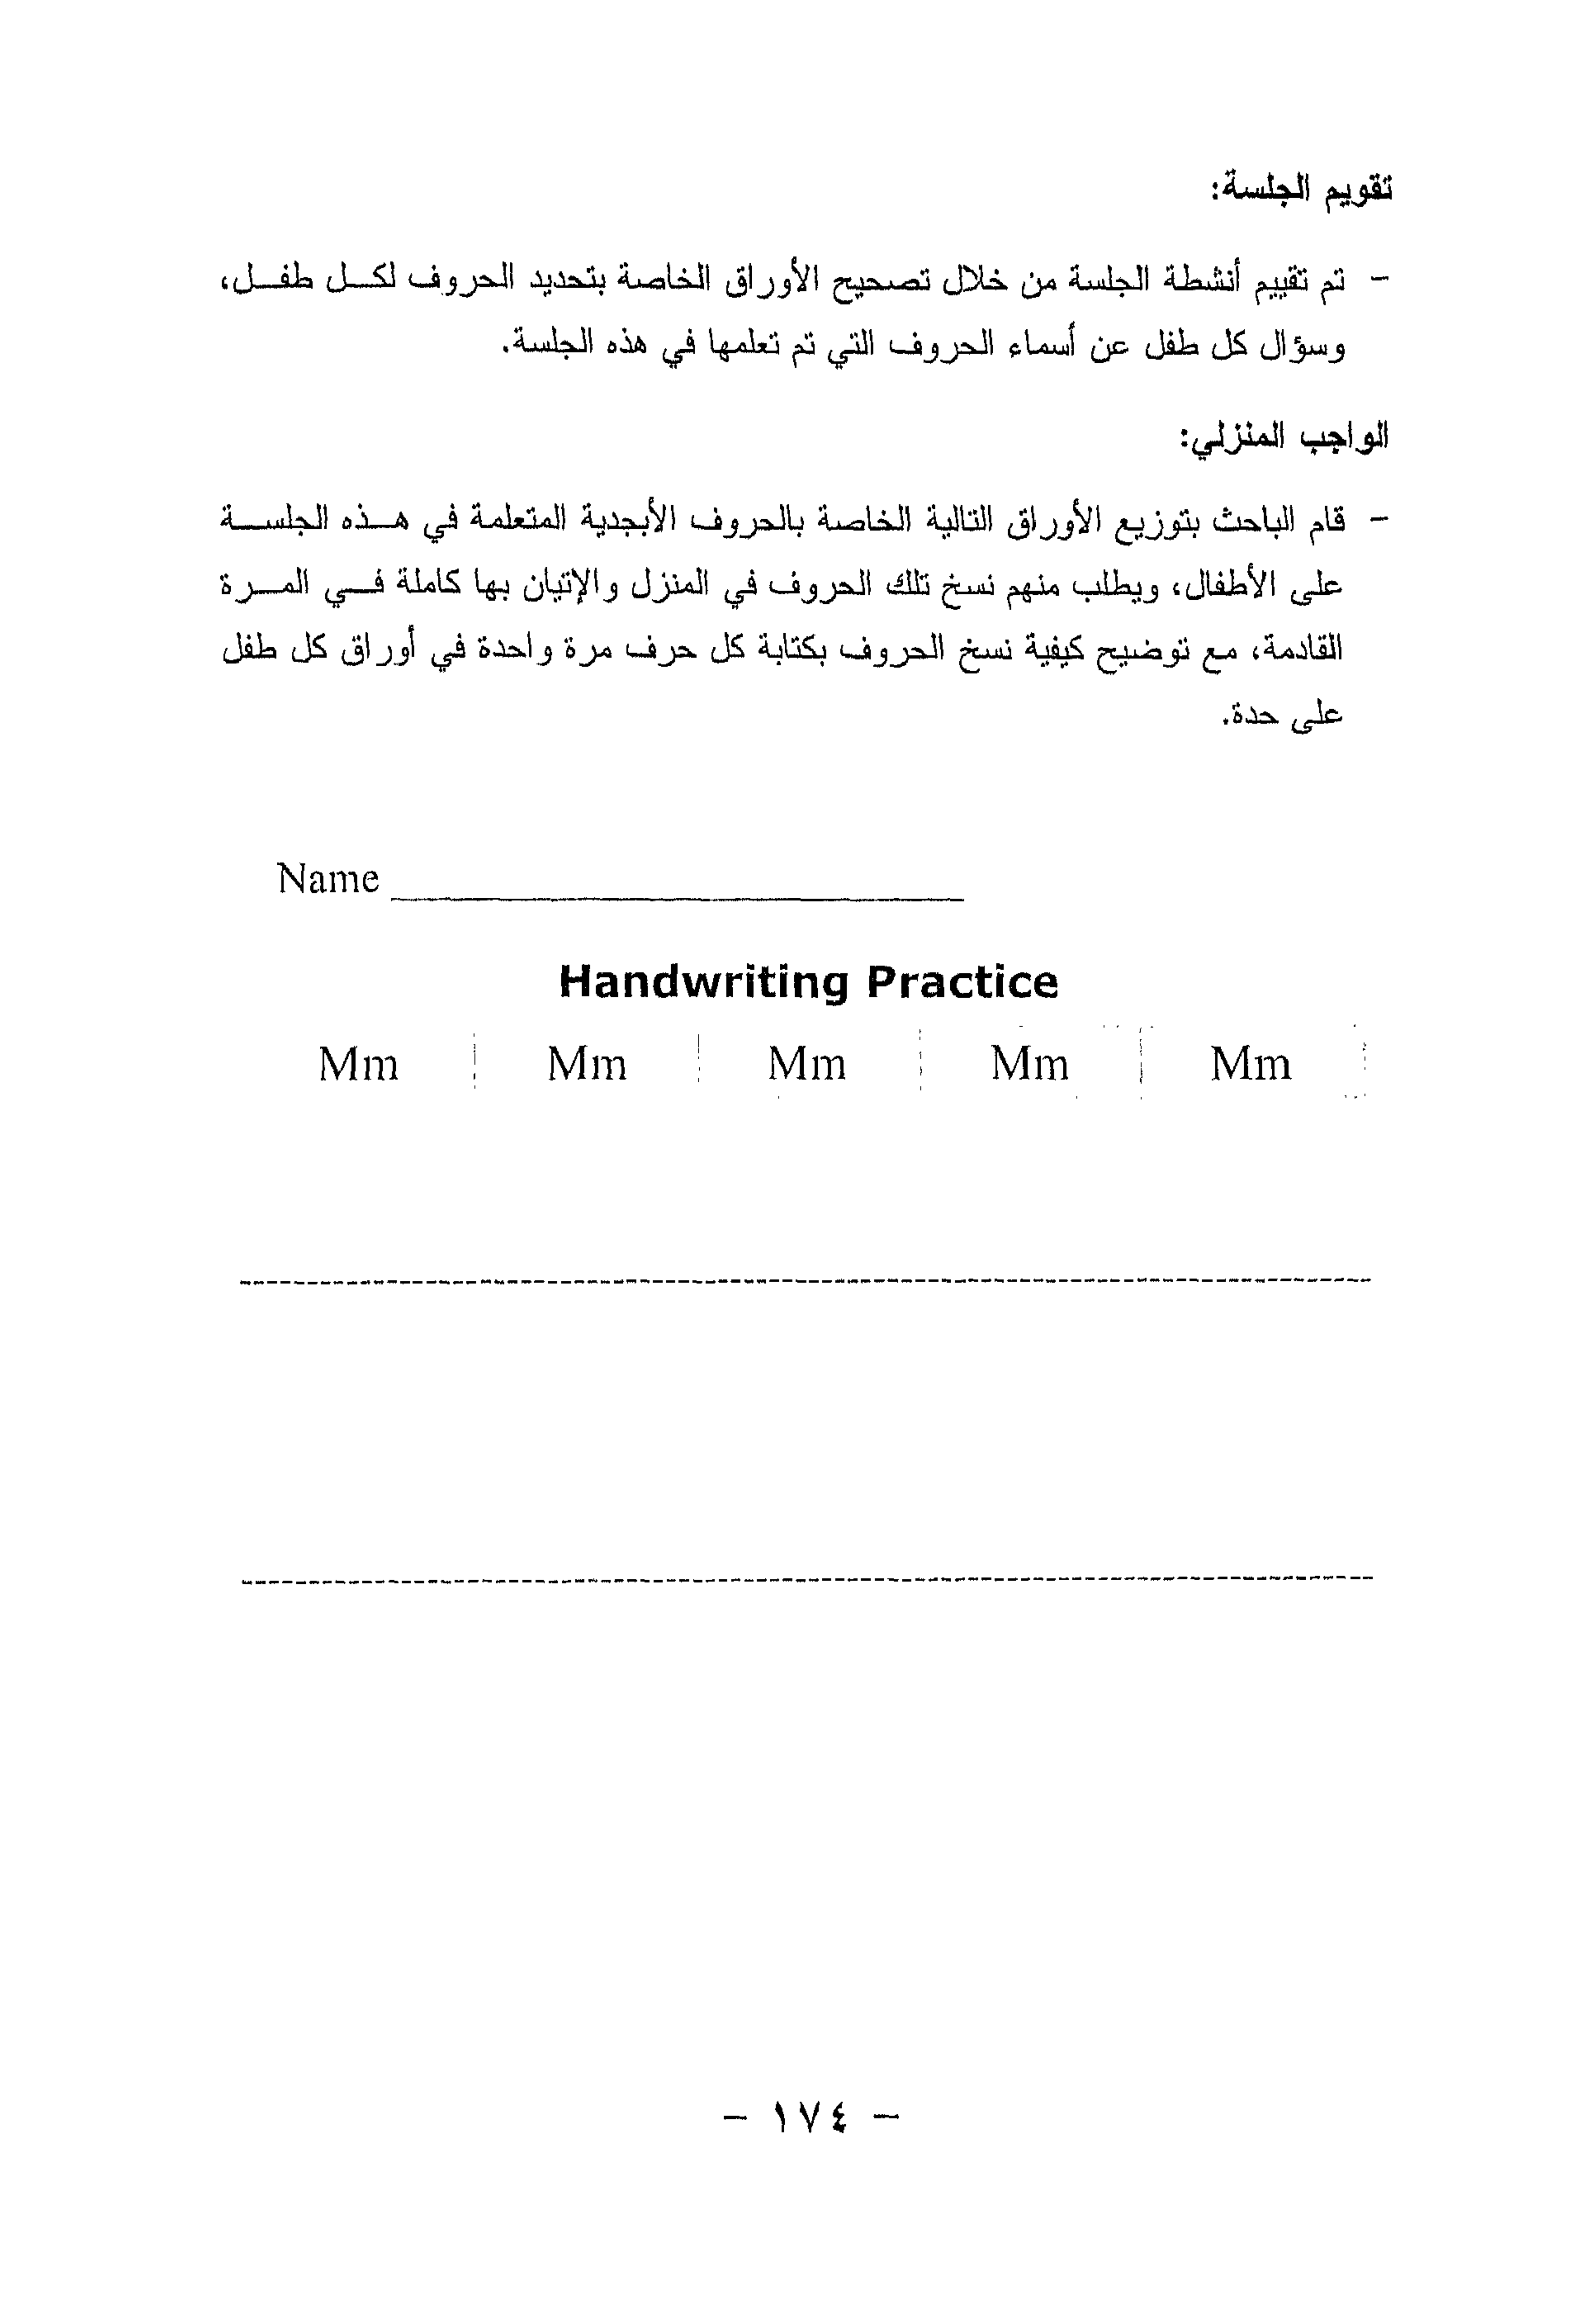 تقويم الجلسة:
- تم تقييم أنشطة الجلسة من خلال تصحيح الأوراق الخاصة بتحديد الحروف لكل طفل،
وسؤال كل طفل عن أسماء الحروف التي تم تعلمها في هذه الجلسة.
الواجب المنزلي:
- قام الباحث بتوزيع الأوراق التالية الخاصة بالحروف الأبجدية المتعلمة في هذه الجلسة
على الأطفال، ويطلب منهم نسخ تلك الحروف في المنزل والإتيان بها كاملة في المرة
القادمة، مع توضيح كيفية نسخ الحروف بكتابة كل حرف مرة واحدة في أوراق كل طفل
على حدة.
Name
Handwriting Practice
Mm Mm Mm Mm Mm
- ١٧٤ -